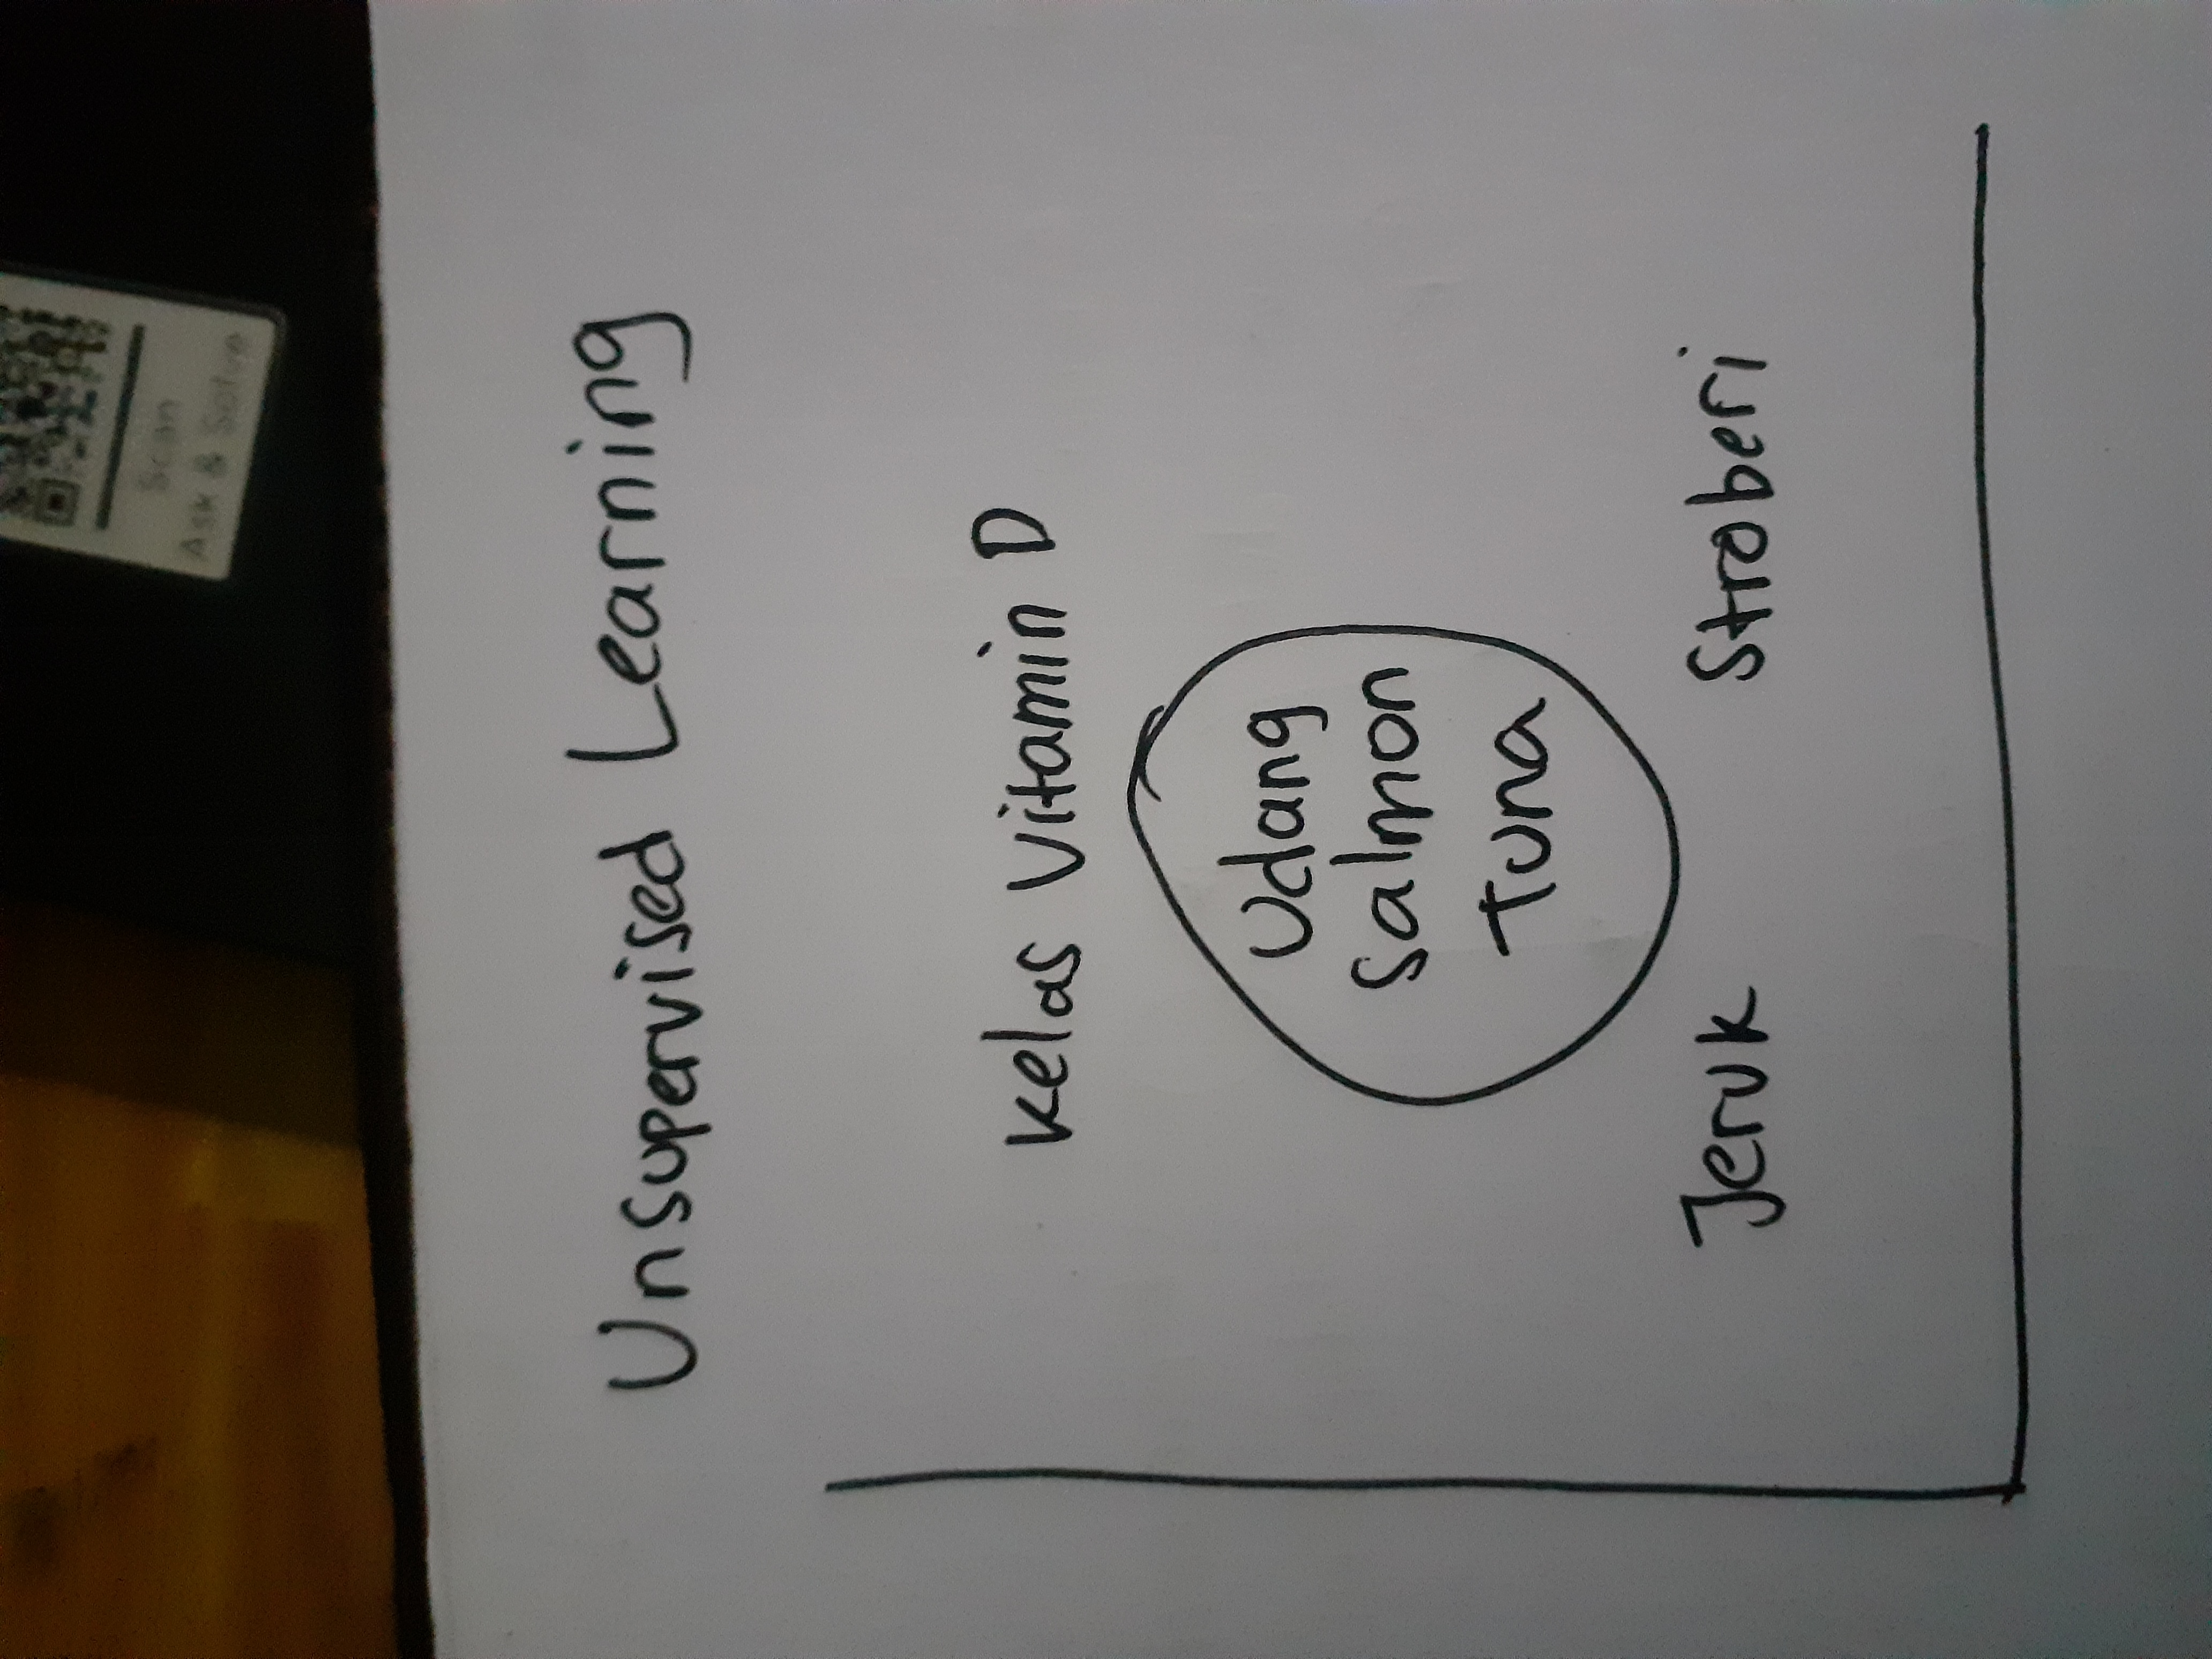 Scan
Ask & Solve
Unsupervised Learning
Kelas Vitamin D
Udang
Salmon
Tuna
Jeruk
Stroberi